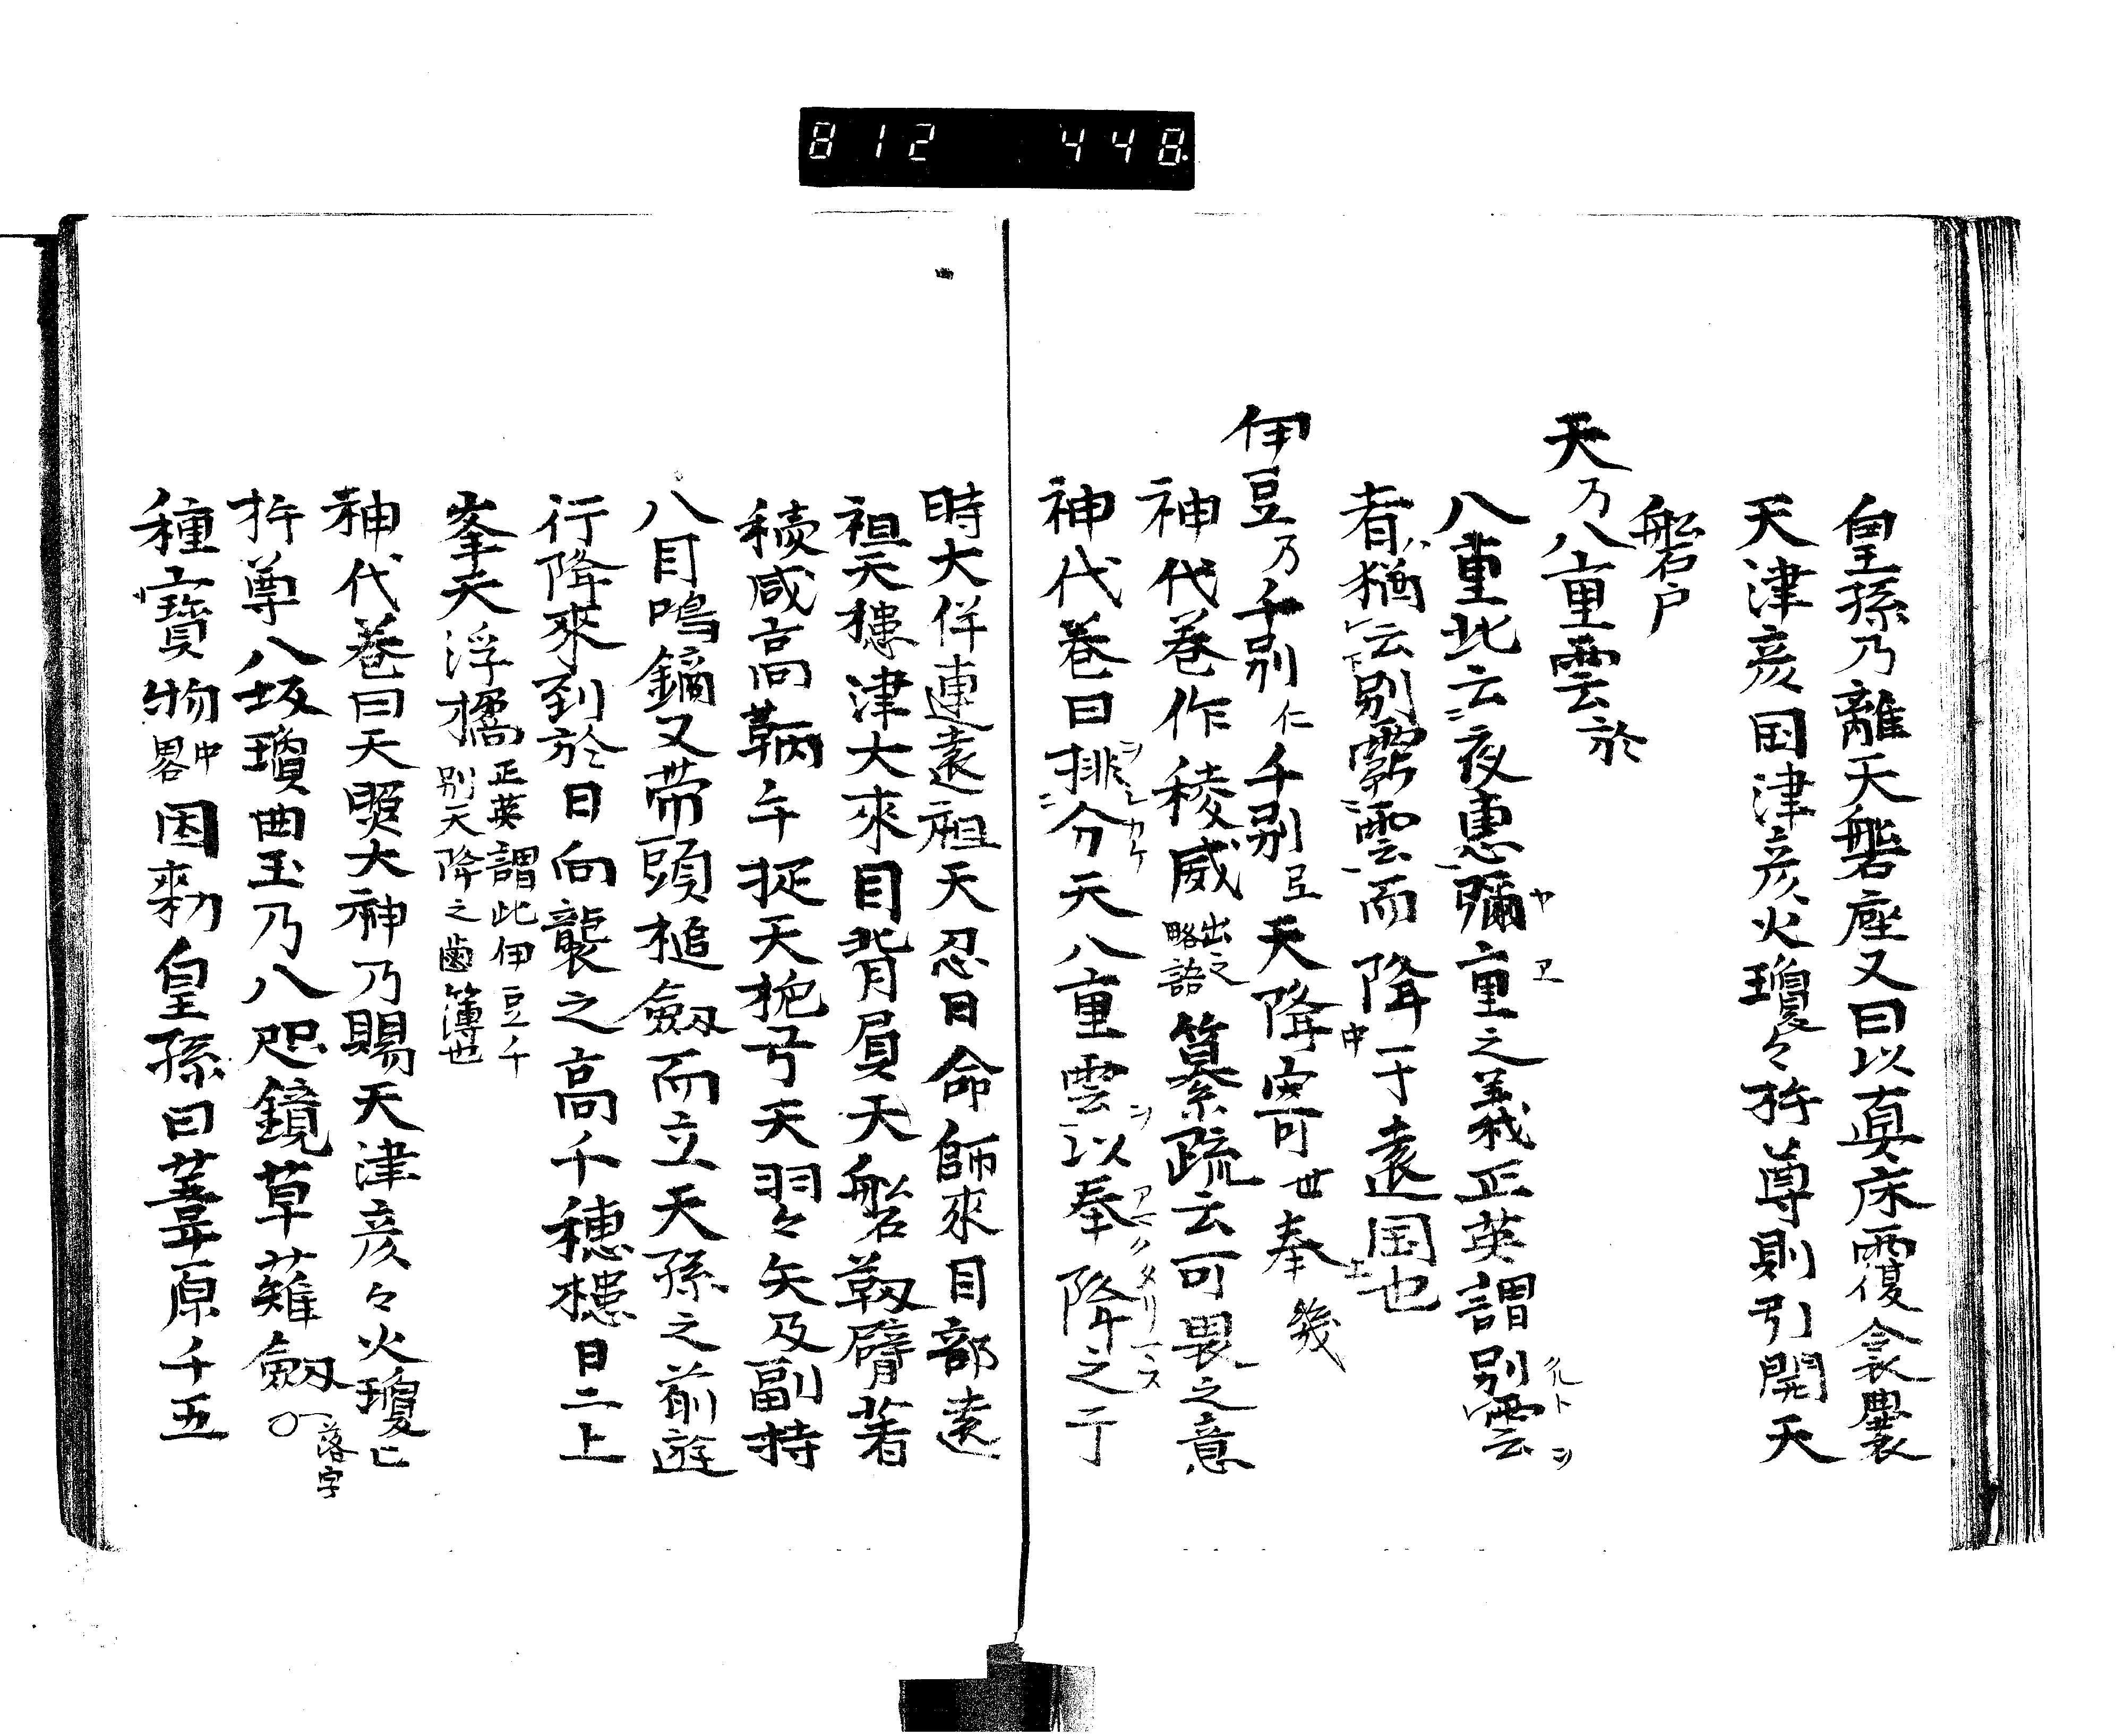 812 448
皇孫乃離天磐座又曰以真床覆衾裹
天津彦国津彦火瓊々杵尊則引開天
磐戸
天乃八重雲於
八重此云夜惠彌重之義正英謂別雲
者猶云別霧雲而降于遠国也
伊豆乃千別仁千別弖天降寄世奉幾
神代巻作稜威出之略語纂疏云可畏之意
神代巻曰排分天八重雲以奉降之于
時大伴連遠祖天忍日命師來目部遠
祖天槵津大來目背負天磐靫臂著
稜威高鞆手捉天梔弓天羽々矢及副持
八目鳴鏑又帯頭槌劔而立天孫之前遊
行降來到於日向襲之高千穂槵日二上
峯天浮橋正英謂此伊豆千別天降之鹵簿也
神代巻曰天照大神乃賜天津彦々火瓊已
杵尊八坂瓊曲玉乃八咫鏡草薙劔〇落字
種寶物中畧因勅皇孫曰葦原千五